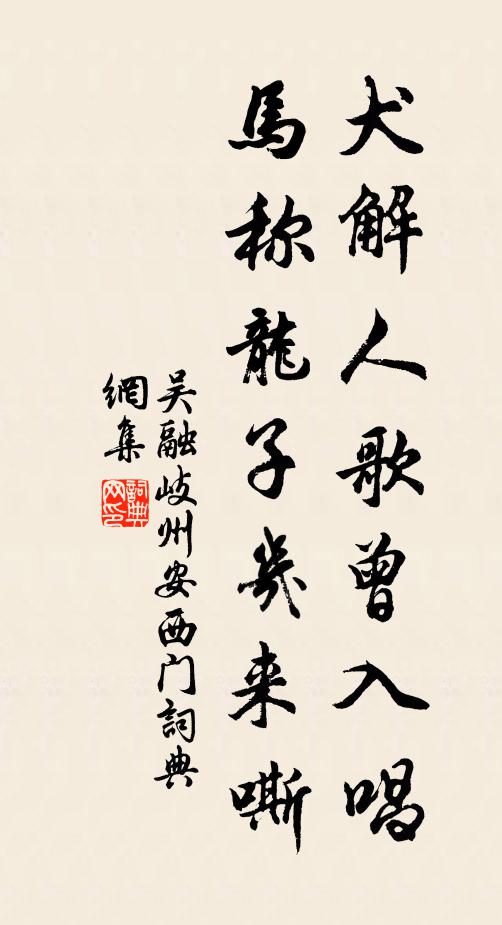 犬解人歌曾入唱
馬称龍子幾来嘶
吴融岐州安西门詞典
網集
詞典网印